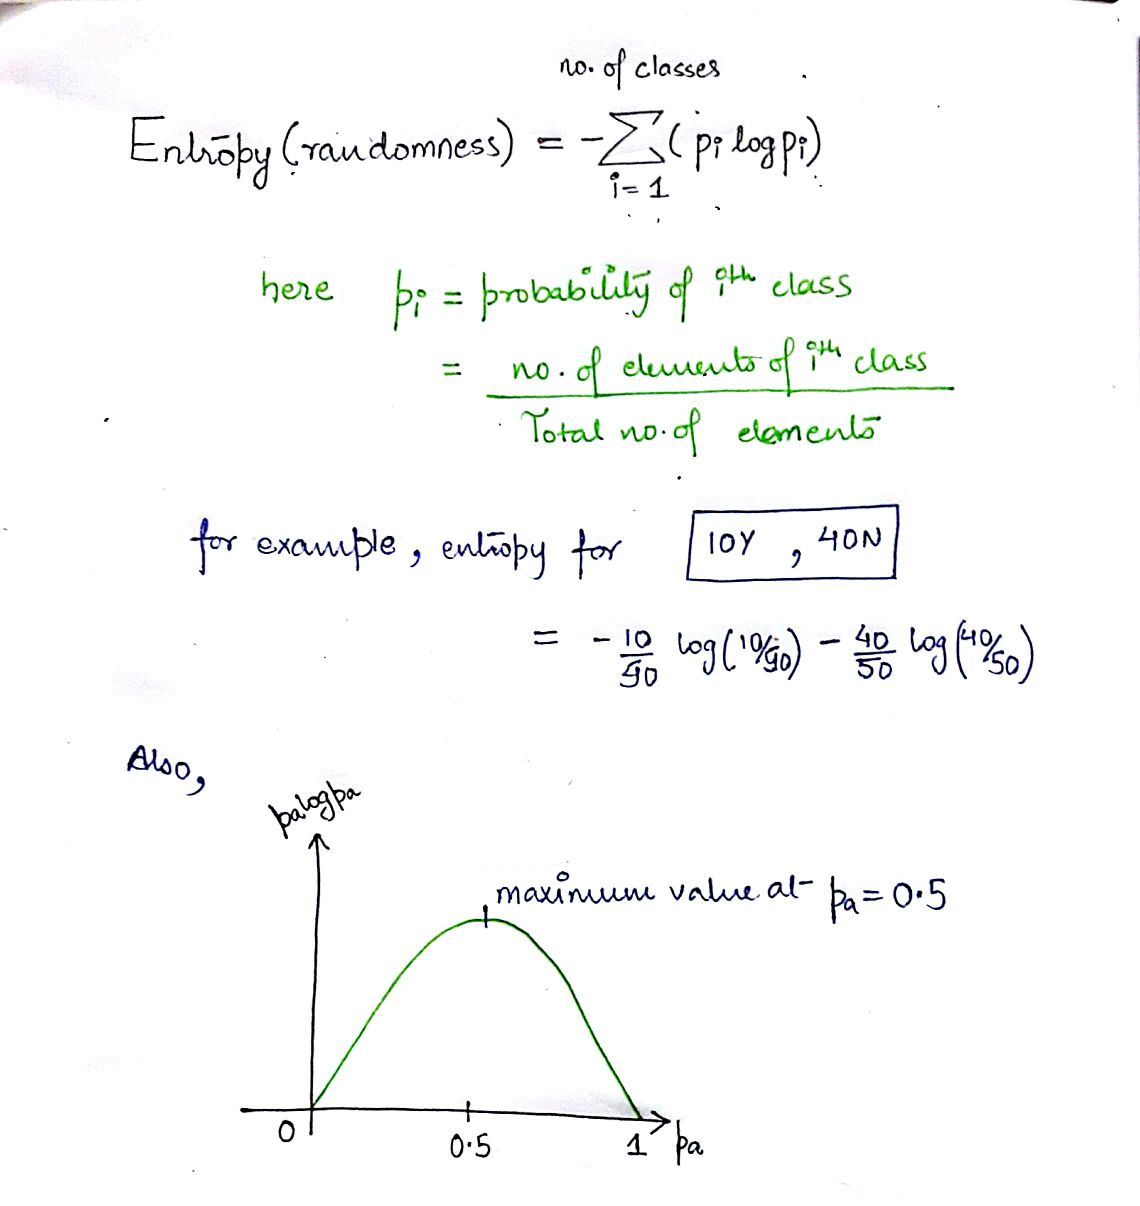 no. of classes
Entropy (randomness) = - Σ ( pi log pi)
i = 1
here pi = probability of ith class
= no. of elements of ith class
Total no. of elements
for example, entropy for 10Y , 40N
= - 10/50 log(10/50) - 40/50 log(40/50)
Also,
pa log pa
maximum value at pa = 0.5
0 0.5 1 pa